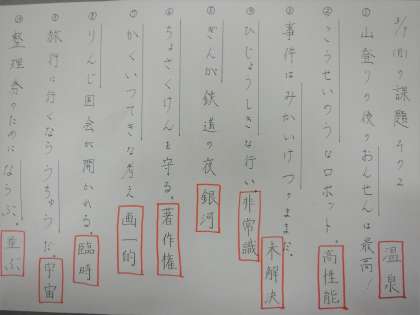 3/2(月)の課題 その2
① 山登りの後のおんせんは最高! 温泉
② こうせいのうなロボット。 高性能
③ 事件はみかいけつのままだ。 未解決
④ ひじょうしきな行い。 非常識
⑤ ぎんが鉄道の夜 銀河
⑥ ちょさくけんを守る。 著作権
⑦ かくいつてきな考え 画一的
⑧ りんじ国会が開かれる。 臨時
⑨ 旅行に行くならうちゅうだ。 宇宙
⑩ 整理券のためにならぶ。 並ぶ